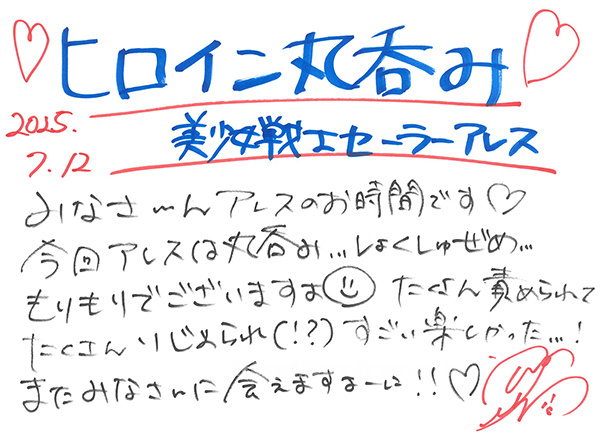 ヒロイン丸呑み
美少女戦士セーラーアレス
2025.
7.12
みなさーんアレスのお時間です♡
今回アレスは丸呑み...しょくしゅぜめ...
もりもりでございますよ☺ たくさん責められて
たくさんいじめられ(!?)すごい楽しかった...!
またみなさんに会えますよーに!!♡